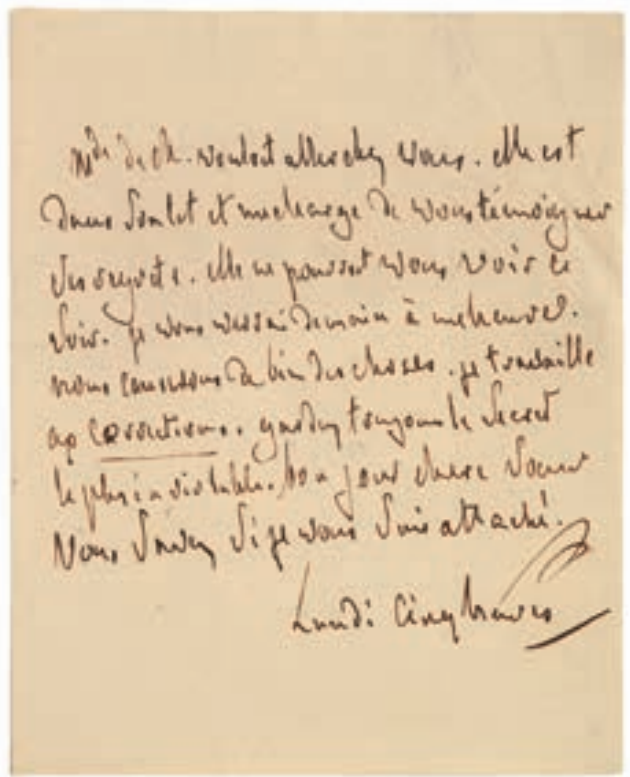 Mde de Ch. vouloit aller chez vous. elle est
dans son lit et me charge de vous témoigner
ses regrets. elle ne pourroit vous voir ce
soir. je vous verrai demain à une heure.
nous causerons de bien des choses. je travaille
aux corrections. gardez toujours le secret
le plus inviolable. bon jour chere soeur
Vous savez si je vous suis attaché.
Lundi cinq heures